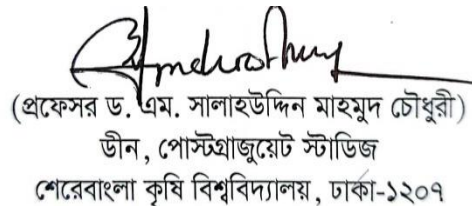 (প্রফেসর ড. এম. সালাহউদ্দিন মাহমুদ চৌধুরী)
ডীন, পোস্টগ্রাজুয়েট স্টাডিজ
শেরেবাংলা কৃষি বিশ্ববিদ্যালয়, ঢাকা-১২০৭